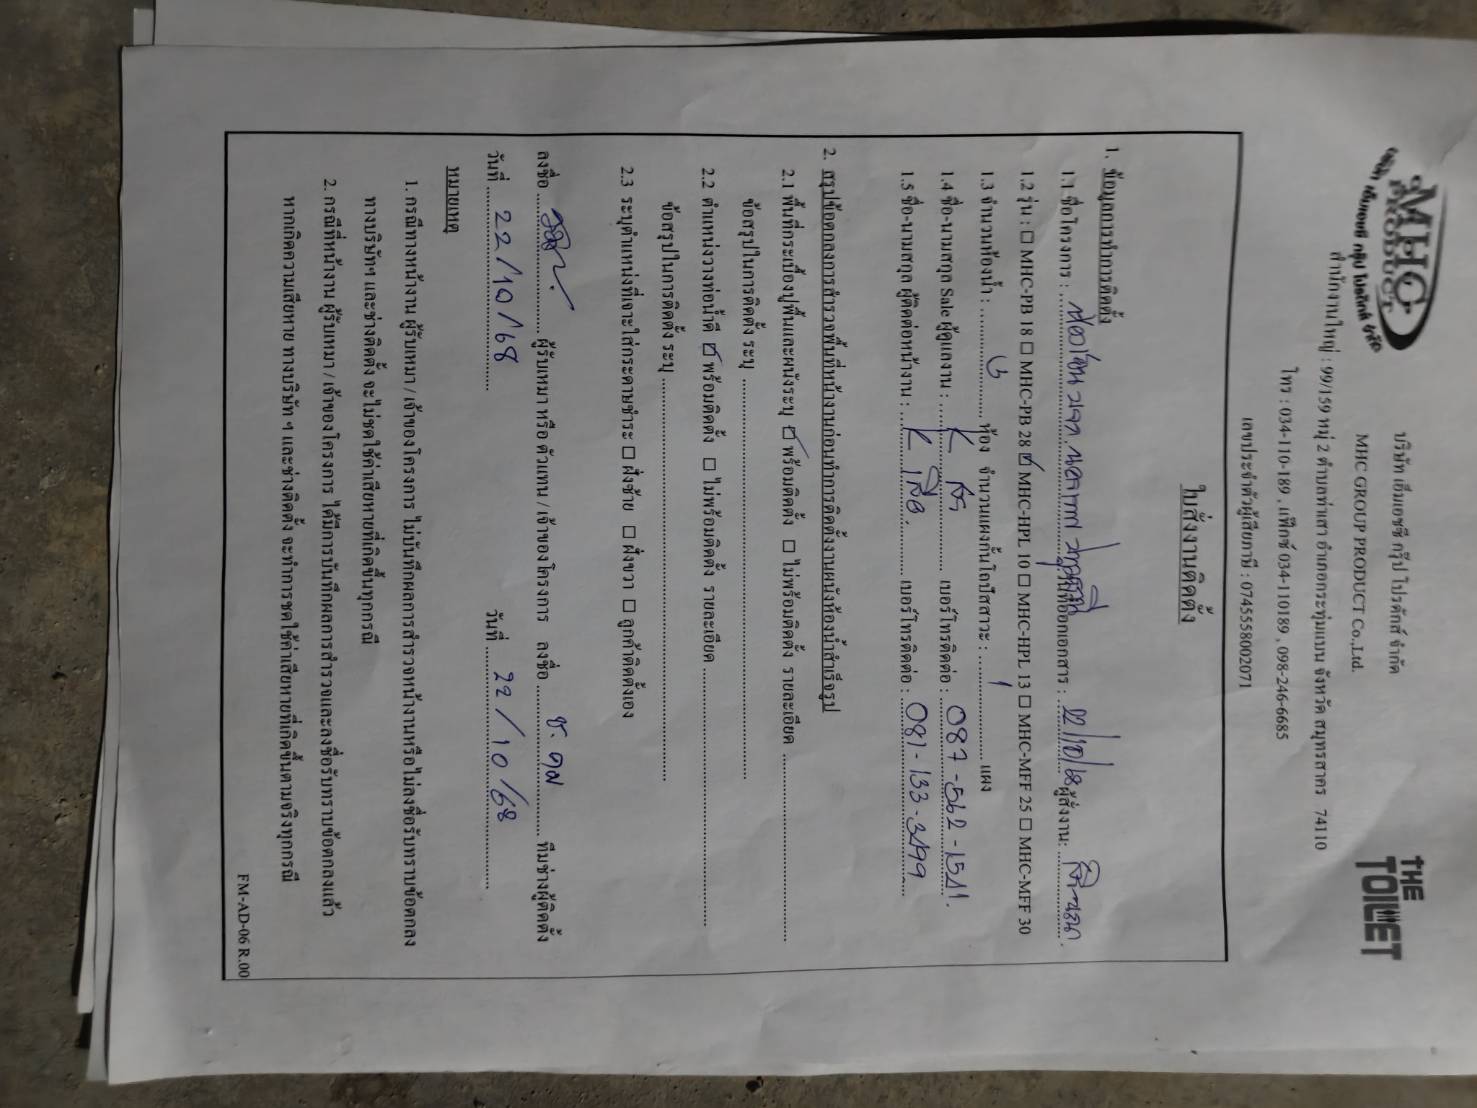 MHC
PRODUCT
บริษัท เอ็มเอชซี กรุ๊ป โปรดักส์ จำกัด
บริษัท เอ็มเอชซี กรุ๊ป โปรดักส์ จำกัด
MHC GROUP PRODUCT Co.,Ltd.
THE TOILET
สำนักงานใหญ่ : 99/159 หมู่ 2 ตำบลท่าเสา อำเภอกระทุ่มแบน จังหวัด สมุทรสาคร 74110
โทร : 034-110-189 , แฟ็กซ์ 034-110189 , 098-246-6685
เลขประจำตัวผู้เสียภาษี : 0745558002071
ใบสั่งงานติดตั้ง
1. ข้อมูลการทำการติดตั้ง
1.1 ชื่อโครงการ : วันที่ออกเอกสาร : 22/10/68 ผู้สั่งงาน:
1.2 รุ่น : ☐ MHC-PB 18 ☐ MHC-PB 28 ☑ MHC-HPL 10 ☐ MHC-HPL 13 ☐ MHC-MFF 25 ☐ MHC-MFF 30
1.3 จำนวนห้องน้ำ : ห้อง จำนวนแผงกั้นโถปัสสาวะ : 1 แผง
1.4 ชื่อ-นามสกุล Sale ผู้ดูแลงาน : K เบอร์โทรติดต่อ : 087-562-1511.
1.5 ชื่อ-นามสกุล ผู้ติดต่อหน้างาน : K เบอร์โทรติดต่อ : 081-133-3499
2. สรุปข้อตกลงการสำรวจพื้นที่หน้างานก่อนทำการติดตั้งงานผนังห้องน้ำสำเร็จรูป
2.1 พื้นที่กระเบื้องปูพื้นและผนังระบุ ☑ พร้อมติดตั้ง ☐ ไม่พร้อมติดตั้ง รายละเอียด
ข้อสรุปในการติดตั้ง ระบุ
2.2 ตำแหน่งวางท่อน้ำดี ☑ พร้อมติดตั้ง ☐ ไม่พร้อมติดตั้ง รายละเอียด
ข้อสรุปในการติดตั้ง ระบุ
2.3 ระบุตำแหน่งที่เจาะใส่กระดาษชำระ ☐ ฝั่งซ้าย ☐ ฝั่งขวา ☐ ลูกค้าติดตั้งเอง
ลงชื่อ ผู้รับเหมา หรือ ตัวแทน / เจ้าของโครงการ ลงชื่อ ทีมช่างผู้ติดตั้ง
วันที่ 22/10/68 วันที่ 22/10/68
หมายเหตุ
1. กรณีทางหน้างาน ผู้รับเหมา / เจ้าของโครงการ ไม่บันทึกผลการสำรวจหน้างานหรือไม่ลงชื่อรับทราบข้อตกลง
ทางบริษัทฯ และช่างติดตั้ง จะไม่ชดใช้ค่าเสียหายที่เกิดขึ้นทุกกรณี
2. กรณีที่หน้างาน ผู้รับเหมา / เจ้าของโครงการ ได้มีการบันทึกผลการสำรวจและลงชื่อรับทราบข้อตกลงแล้ว
หากเกิดความเสียหาย ทางบริษัท ฯ และช่างติดตั้ง จะทำการชดใช้ค่าเสียหายที่เกิดขึ้นตามจริงทุกกรณี
FM-AD-06 R.00